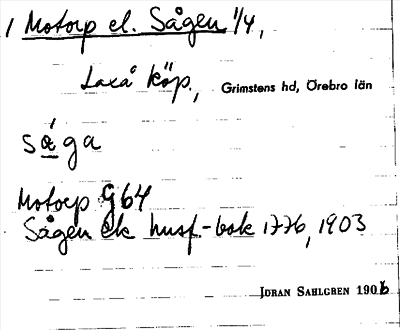 1 Motorp el. Sågen 1/4,
Laxå köp., Grimstens hd, Örebro län
såga
Motorp G64
Sågen ek husf-bok 1776, 1903
JÖRAN SAHLGREN 1906